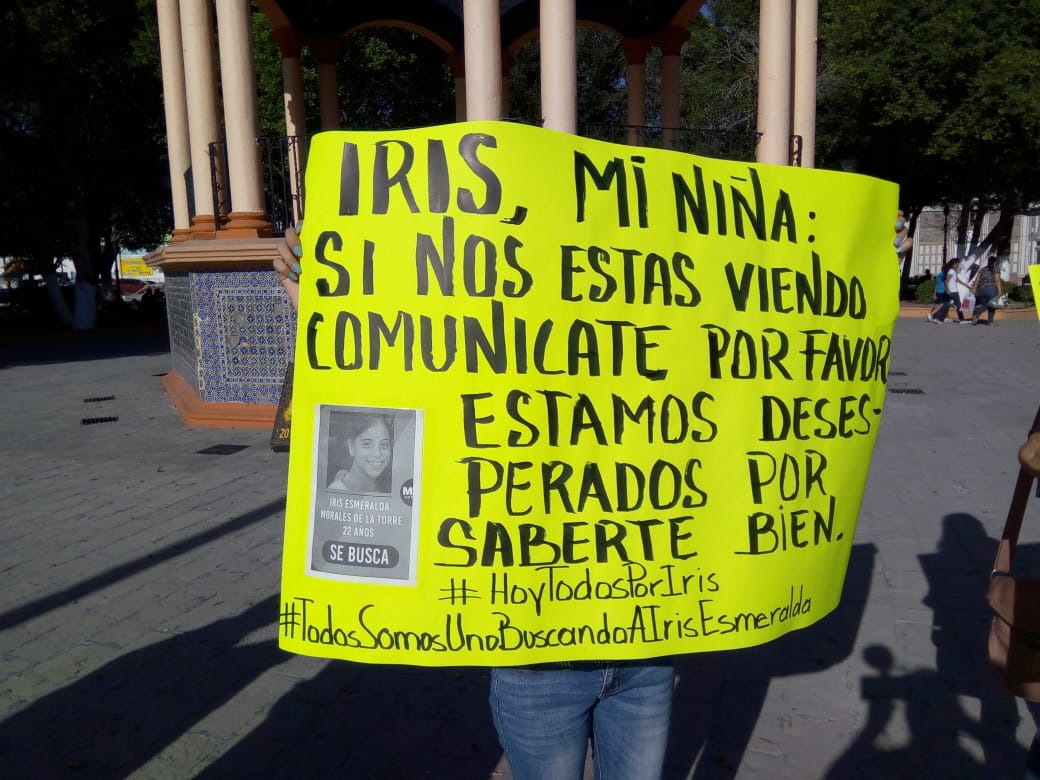 IRIS, MI NIÑA:
SI NOS ESTAS VIENDO
COMUNICATE POR FAVOR
ESTAMOS DESES-
PERADOS POR
SABERTE BIEN.
IRIS ESMERALDA
MORALES DE LA TORRE
22 AÑOS
SE BUSCA
#HoyTodosPorIris
#TodosSomosUnoBuscandoAIrisEsmeralda